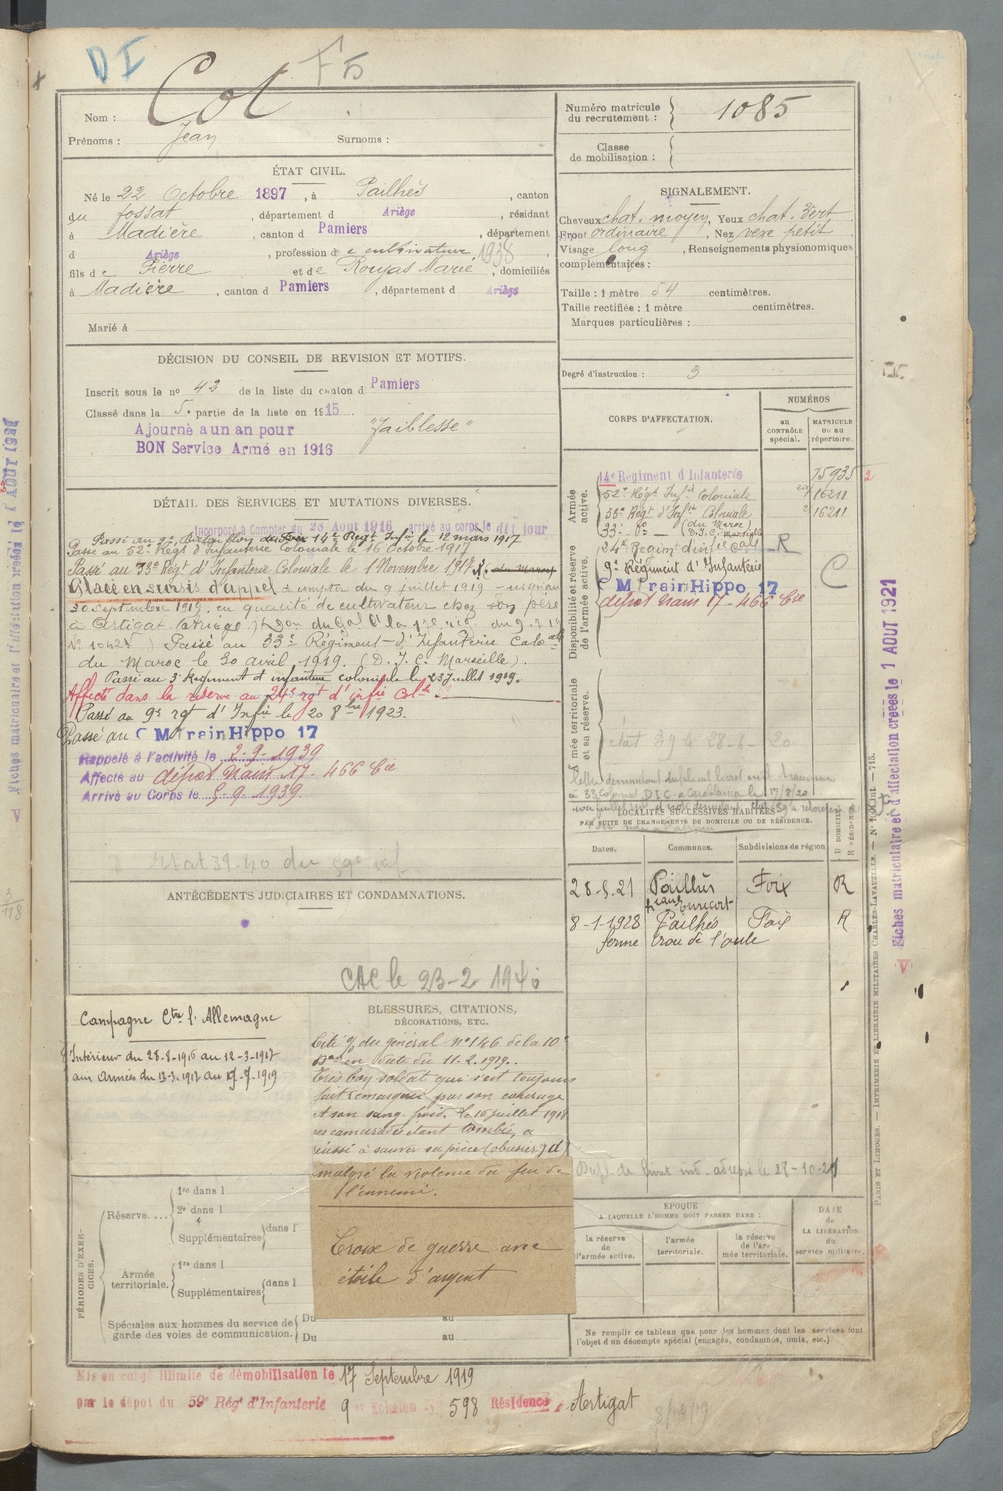 DI
F5
Nom : Cot
Prénoms : Jean Surnoms :
Numéro matricule du recrutement : 1085
Classe de mobilisation :
ÉTAT CIVIL.
Né le 22 Octobre 1897, à Pailhès, canton
du fossat, département d Ariège, résidant
à Madière, canton d Pamiers, département
d Ariège, profession de cultivateur, 1938
fils de Pierre et de Rouyas Marie, domiciliés
à Madière, canton d Pamiers, département d Ariège
Marié à
SIGNALEMENT.
Cheveux chat. moyen, Yeux chat. vert
Front ordinaire, Nez vexe petit
Visage long, Renseignements physionomiques
complémentaires :
Taille : 1 mètre 54 centimètres.
Taille rectifiée : 1 mètre centimètres.
Marques particulières :
Degré d'instruction : 3
DÉCISION DU CONSEIL DE REVISION ET MOTIFS.
Inscrit sous le n° 42 de la liste du canton d Pamiers
Classé dans la 5e partie de la liste en 1915
Ajourné a un an pour "Faiblesse"
BON Service Armé en 1916
DÉTAIL DES SERVICES ET MUTATIONS DIVERSES.
Incorporé à Compter du 28 Août 1916 arrivé au corps le dit jour
Passé au 14e Regt Infie le 12 mars 1917
Passé au 52e Régt d'Infanterie Coloniale le 16 Octobre 1917
Passé au 33e Rég. d'Infanterie Coloniale le 1 Novembre 1918 du maroc
Placé en sursis d'appel à compter du 9 juillet 1919
30 Septembre 1919, en qualité de cultivateur chez son père
à Artigat (Ariège)
Passé au 33e Régiment d'Infanterie Colale
du Maroc le 30 avril 1919. (D. I. C. Marseille).
Passé au 3e Regiment d'infanterie coloniale le 23 Juillet 1919.
Affecté dans la réserve au 24e rgt d'infie Colle.
Passé au 9e rgt d'Infie le 20 8bre 1923.
Passé au C M Train Hippo 17
Rappelé à l'activité le 2-9-1939
Affecté au dépôt train 17 - 466 Cie
Arrivé au Corps le 5-9-1939.
CORPS D'AFFECTATION.
NUMÉROS
au CONTRÔLE spécial.
MATRICULE ou au répertoire.
Armée active.
14e Régiment d'Infanterie 15935
52e Régt Infie Coloniale 16211
33e Régt d'Infie Coloniale 16211
33e do (du Maroc) (D.I.C. Marseille)
Disponibilité et réserve de l'armée active.
24e Regim d'infie Cale R
9e Régiment d'Infanterie
C M Train Hippo 17
dépôt train 17 - 466 Cie
C
Armée territoriale et sa réserve.
état 39 le 28-8-20
à 33 Colonial D.I.C. à Casablanca le 17/8/20
LOCALITÉS SUCCESSIVES HABITÉES
PAR SUITE DE CHANGEMENTS DE DOMICILE OU DE RÉSIDENCE.
Dates. Communes. Subdivisions de région
D DOMICILE
R RÉSIDENCE
28-5-21 Pailhès Foix R
8-1-1928 Pailhès Foix R
ferme trou de l'oule
ANTÉCÉDENTS JUDICIAIRES ET CONDAMNATIONS.
CAC le 23-2 1940
Campagne Ctre l'Allemagne
Intérieur du 28-8-1916 au 12-3-1917
aux Armées du 13-3-1917 au
BLESSURES, CITATIONS,
DÉCORATIONS, ETC.
Cité O/ du général n° 146 de la 10e
Don en date du 11.2.1919.
Très bon soldat qui s'est toujours
fait remarquer par son courage
et son sang-froid. Le 15 juillet 1918
ses camarades étant tombés, a
réussi à sauver sa pièce (obusier)
malgré la violence du feu de
l'ennemi.
Croix de guerre avec
étoile d'argent
PÉRIODES D'EXERCICES.
Réserve....
1re dans l
2e dans l
Supplémentaires dans l
Armée territoriale.
1re dans l
Supplémentaires dans l
Spéciales aux hommes du service de garde des voies de communication.
Du au
Du au
ÉPOQUE
À LAQUELLE L'HOMME DOIT PASSER DANS :
la réserve de l'armée active.
l'armée territoriale.
la réserve de l'armée territoriale.
DATE de LA LIBÉRATION du service militaire.
Ne remplir ce tableau que pour les hommes dont les services font
l'objet d'un décompte spécial (engagés, condamnés, omis, etc.).
Mis en congé illimité de démobilisation le 17 Septembre 1919
par le dépôt du 59e Régt d'Infanterie 9e Echelon N° 598 Résidence Artigat
Fiches matriculaire et d'affectation créées le 1 AOUT 1921
PARIS ET LIMOGES. — IMPRIMERIE ET LIBRAIRIE MILITAIRES CHARLES-LAVAUZELLE.